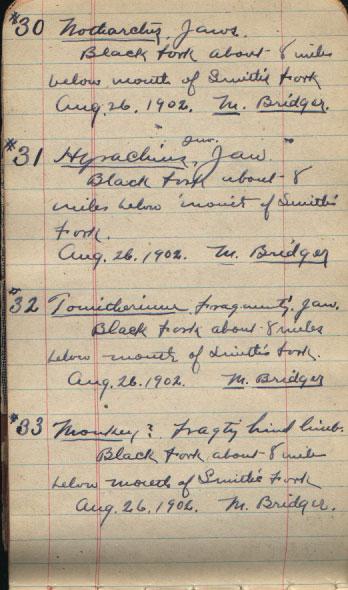 #30 Notharctus, Jaws.
Black Fork about 8 miles
below mouth of Smith's Fork
Aug. 26, 1902. M. Bridger.
#31 Hyrachius, Jaw.
Black Fork about 8
miles below mouth of Smith's
Fork.
Aug. 26, 1902. M. Bridger
#32 Tomitherium fragmnts. Jaw.
Black Fork about 8 miles
below mouth of Smith's Fork.
Aug. 26. 1902. M. Bridger
#33 Monkey? Fragts hind limb.
Black Fork about 8 miles
below mouth of Smith's Fork
Aug. 26, 1902. M. Bridger.